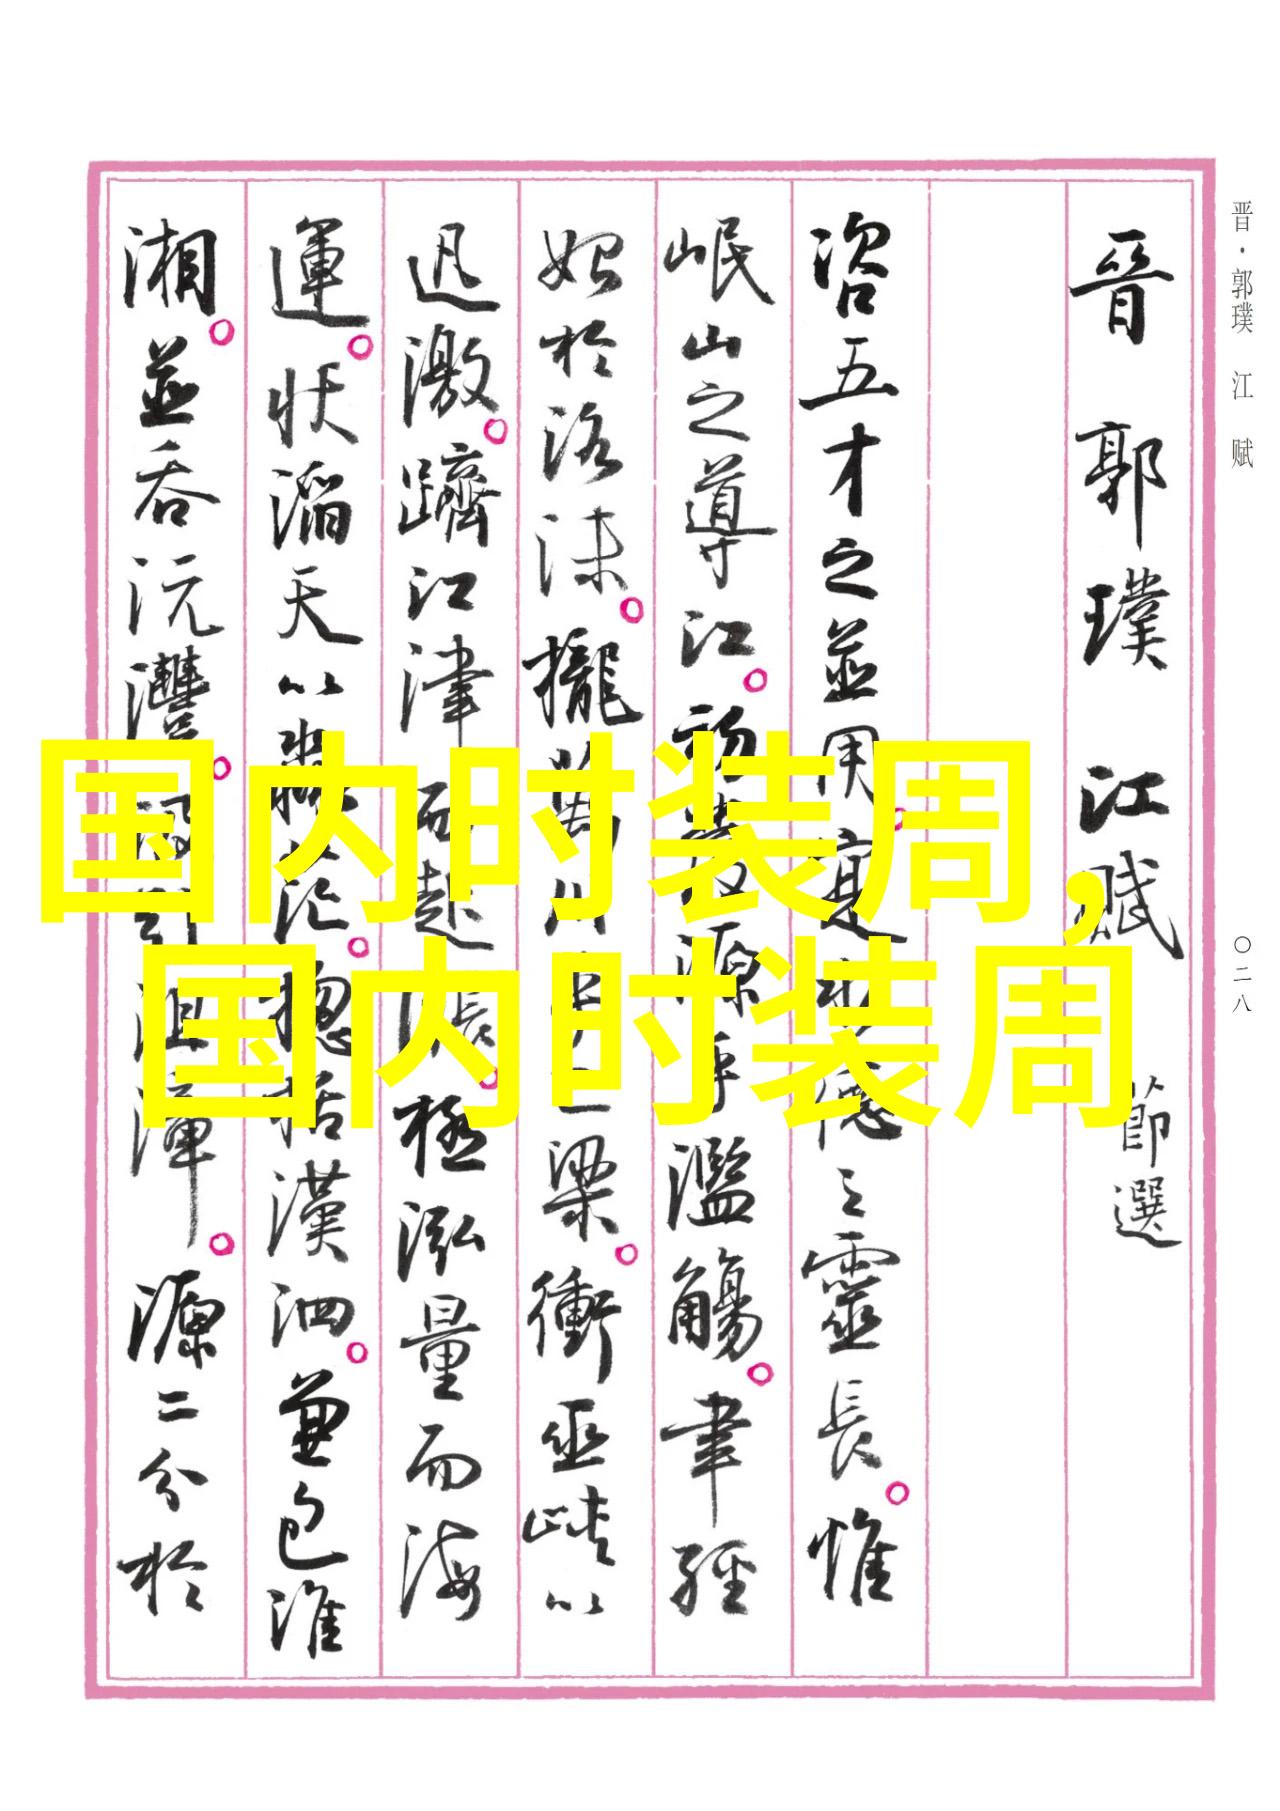 晋·郭璞 江赋
〇二八
晉 郭璞 江賦 節選
咨五才之並用。寔水德之靈長。惟
岷山之導江。初發源乎濫觴。聿經
始於洛沬。攏萬川乎巴梁。衝巫峽以
迅激。躋江津而起漲。極泓量而海
運。狀滔天以淼茫。揔括漢泗。兼包淮
湘。並吞沅灃。汲引沮漳。源二分於
国内时装周,
国内时装周